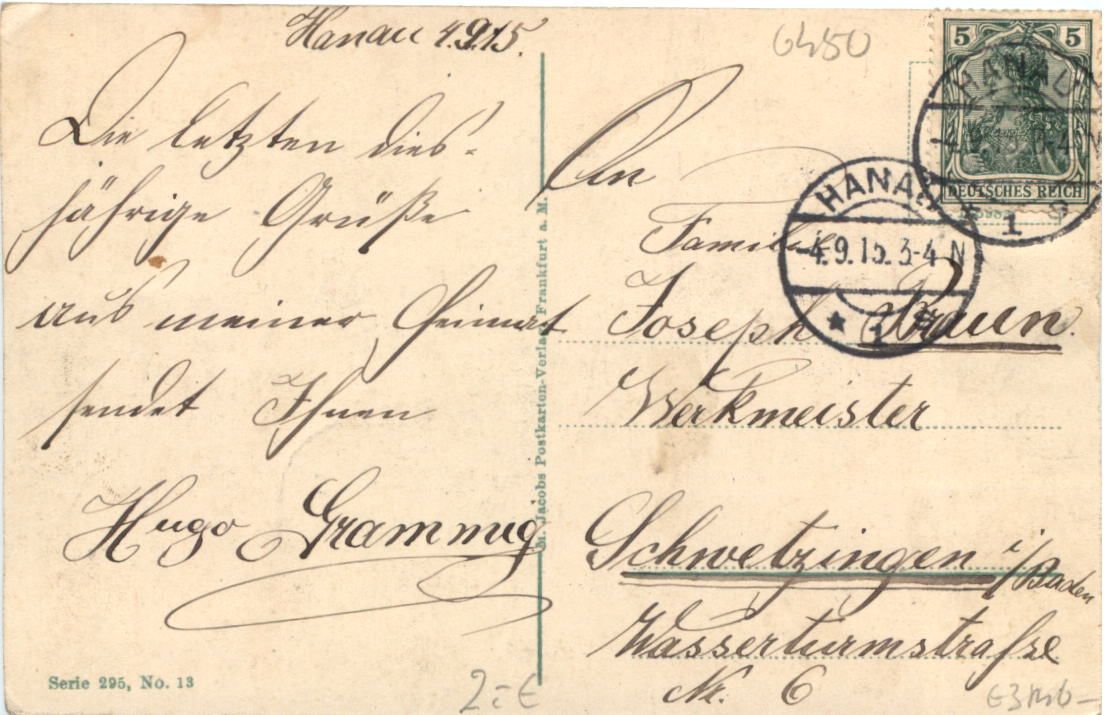 Hanau 4.9.15.
Die letzten dies-
jährige Grüße
aus meiner Heimat
sendet Ihnen
Hugo Grammig
Serie 295, No. 13
M. Jacobs Postkarten-Verlag, Frankfurt a. M.
6450
5 5
DEUTSCHES REICH
HANAU
1
HANAU
-4.9.15.3-4 N
* 1
An
Familie
Joseph Braun.
Werkmeister
Schwetzingen i/Baden
Wasserturmstraſse
Nr. 6
2.- €